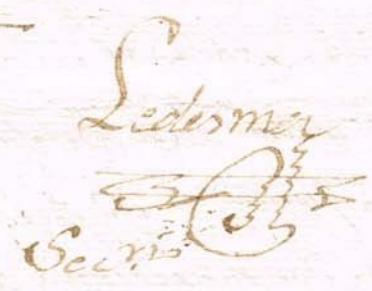 Ledesma
Secrio